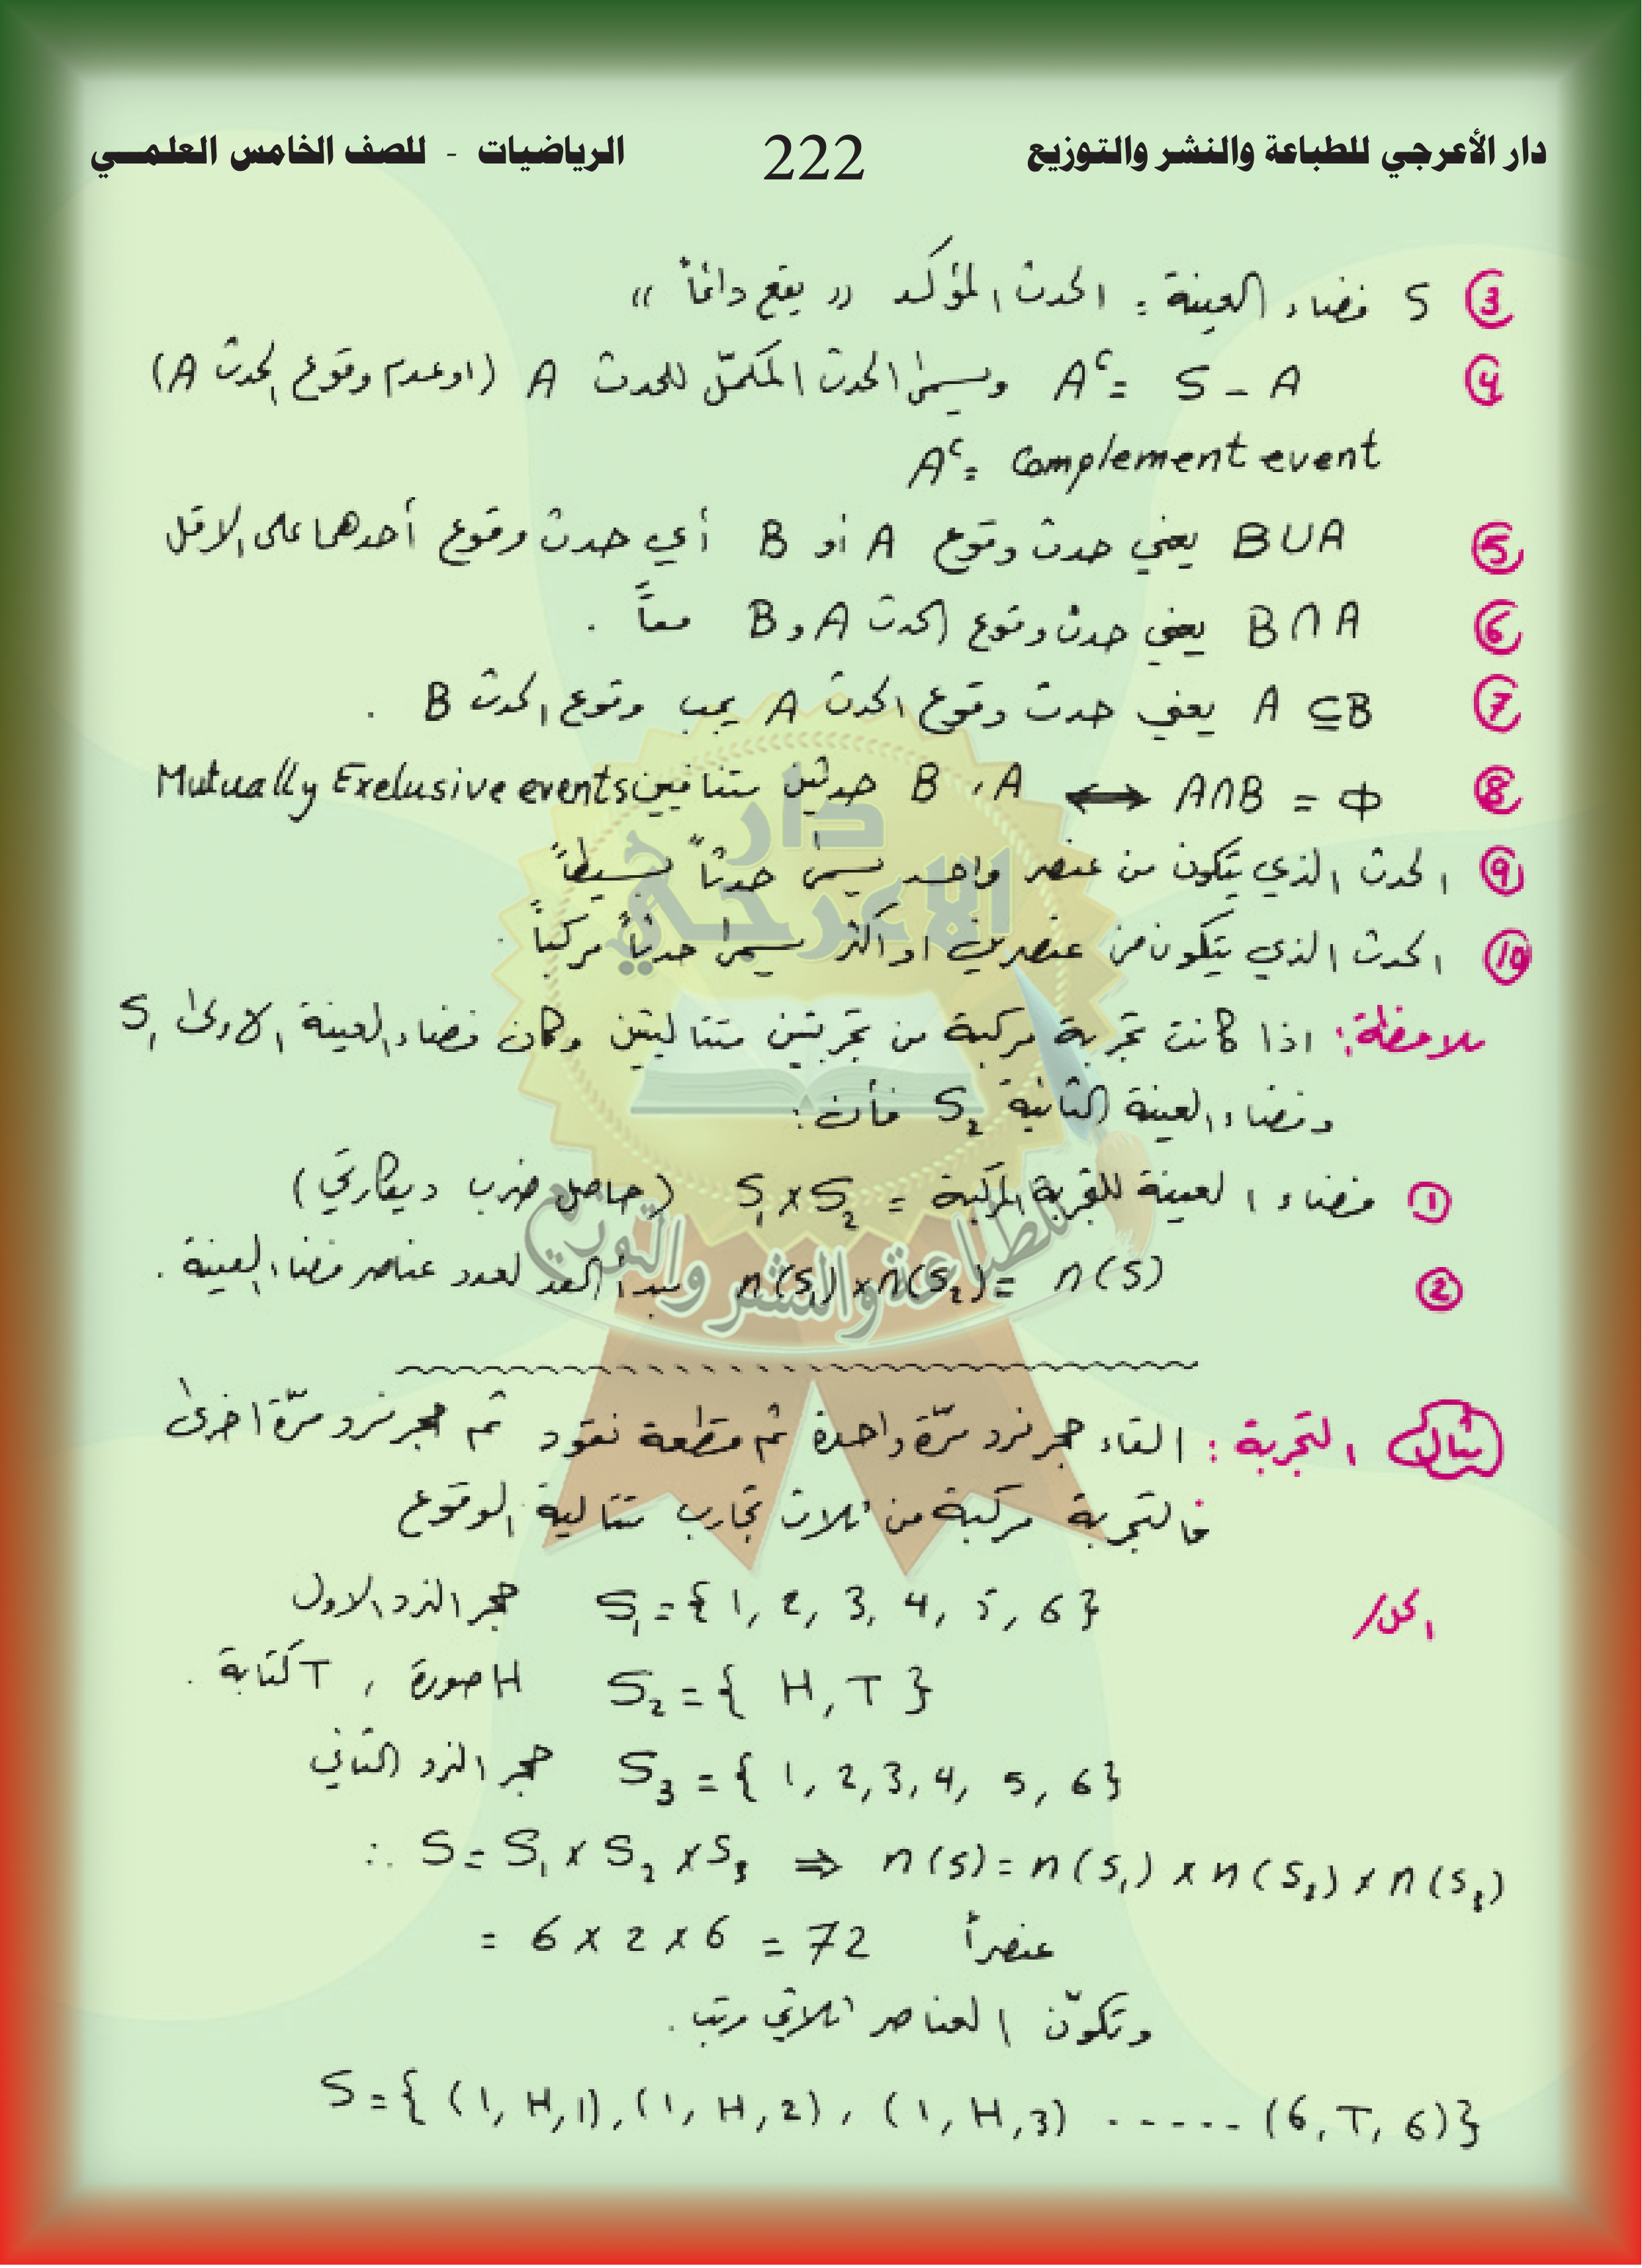 دار الأعرجي للطباعة والنشر والتوزيع 222 الرياضيات - للصف الخامس العلمــــي
③ S فضاء العينة : الحدث المؤكد « يقع دائماً »
④ Aᶜ = S - A ويسمى الحدث المكمّل للحدث A (او عدم وقوع الحدث A)
Aᶜ = Complement event
⑤ B∪A يعني حدث وقوع A أو B أي حدث وقوع أحدهما على الاقل
⑥ B∩A يعني حدث وقوع الحدث A و B معاً .
⑦ A ⊆ B يعني حدث وقوع الحدث A يجب وقوع الحدث B .
⑧ A∩B = Φ ⟷ B , A حدثين متنافيين Mutually Exelusive events
⑨ الحدث الذي يتكون من عنصر واحد يسمى حدثاً بسيطاً
⑩ الحدث الذي يتكون من عنصرين او اكثر يسمى حدثاً مركباً .
ملاحظة: اذا كانت تجربة مركبة من تجربتين متتاليتين وكان فضاء العينة الاولى S₁
وفضاء العينة الثانية S₂ فأن :
① فضاء العينة للتجربة المركبة = S₁×S₂ (حاصل ضرب ديكارتي)
② n(S₁)×n(S₂) = n(S) مبدأ العد لعدد عناصر فضاء العينة .
مثال التجربة : القاء حجر نرد مرّة واحدة ثم قطعة نقود ثم حجر نرد مرّة اخرى
فالتجربة مركبة من ثلاث تجارب متتالية الوقوع
الحل/ S₁ = { 1, 2, 3, 4, 5, 6 } حجر النرد الاول
S₂ = { H, T } H صورة , T كتابة .
S₃ = { 1, 2, 3, 4, 5, 6 } حجر النرد الثاني
∴ S = S₁ × S₂ × S₃ ⇒ n(S) = n(S₁) × n(S₂) × n(S₃)
= 6 × 2 × 6 = 72 عنصراً
وتكوّن العناصر ثلاثي مرتب .
S = { (1, H, 1), (1, H, 2), (1, H, 3) ----- (6, T, 6) }
دار
الاعرجي
للطباعة والنشر والتوزيع